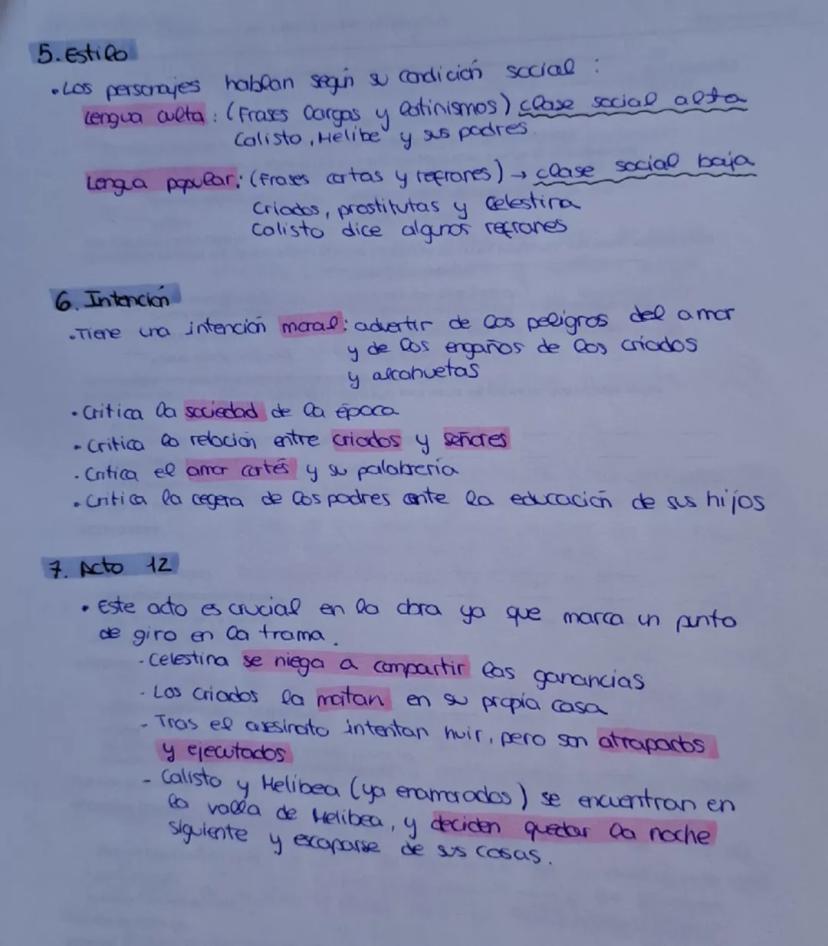 5. Estilo
• Los personajes hablan según su condición social :
Lengua culta : (Frases largas y latinismos) clase social alta
Calisto, Melibe y sus padres
Lengua popular: (Frases cortas y refranes) → clase social baja
Criados, prostitutas y Celestina
Calisto dice algunos refranes
6. Intención
• Tiene una intención moral: advertir de los peligros del amor
y de los engaños de los criados
y alcahuetas
• Critica la sociedad de la época
• Critica la relación entre criados y señores
• Critica el amor cortés y su palabrería
• Critica la cegera de los padres ante la educación de sus hijos
7. Acto 12
• Este acto es crucial en la obra ya que marca un punto
de giro en la trama.
- Celestina se niega a compartir las ganancias
- Los criados la matan en su propia casa
- Tras el asesinato intentan huir, pero son atrapados
y ejecutados
- Calisto y Melibea (ya enamorados) se encuentran en
la valla de Melibea, y deciden quedar la noche
siguiente y escaparse de sus casas.